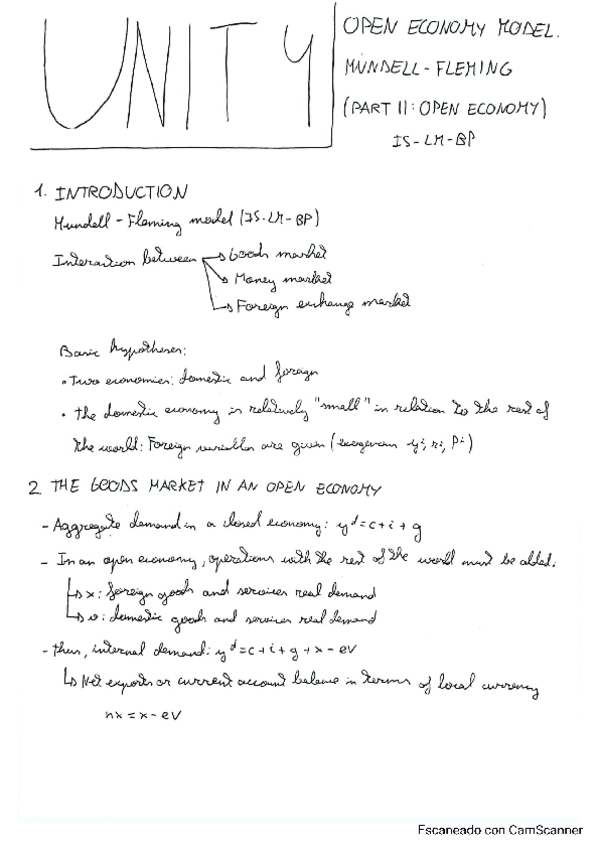 UNIT 4
OPEN ECONOMY MODEL.
MUNDELL-FLEMING
(PART II: OPEN ECONOMY)
IS-LM-BP
1. INTRODUCTION
Mundell-Fleming model (IS-LM-BP)
Interaction between → Goods market
→ Money market
→ Foreign exchange market
Basic hypotheses:
• Two economies: domestic and foreign
• The domestic economy is relatively "small" in relation to the rest of
the world: Foreign variables are given (exogenous
2. THE GOODS MARKET IN AN OPEN ECONOMY
- Aggregate demand in a closed economy: y^d=c+i+g
- In an open economy, operations with the rest of the world must be added.
↳ x: foreign goods and services real demand
↳ v: domestic goods and services real demand
- Thus, internal demand: y^d=c+i+g+x-ev
↳ Net exports or current account balance in terms of local currency
nx=x-ev
Escaneado con CamScanner